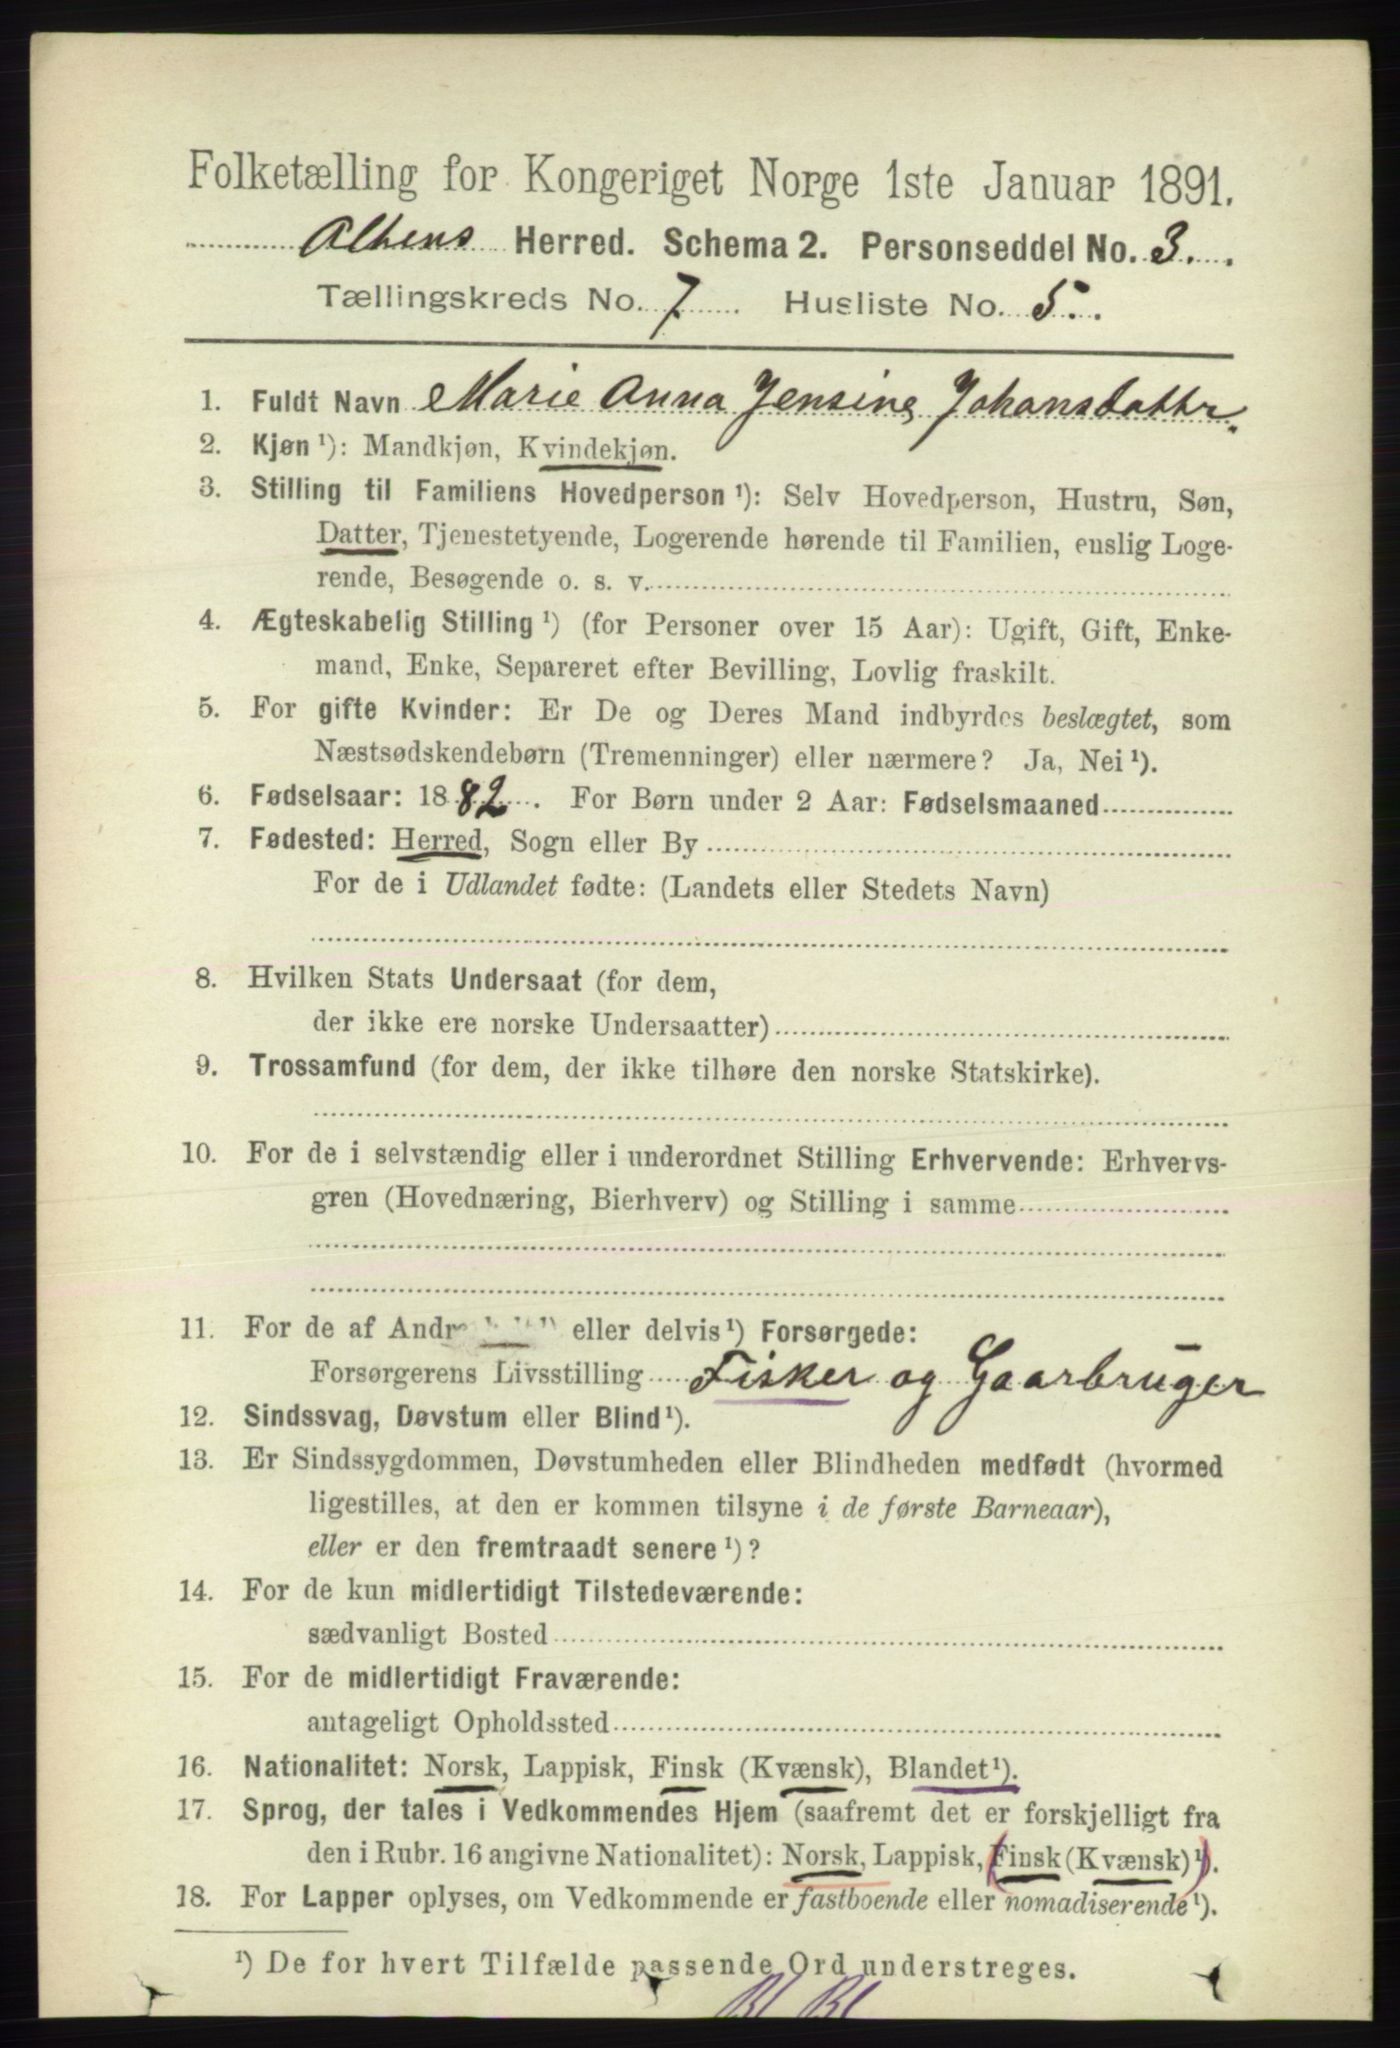 Folketælling for Kongeriget Norge 1ste Januar 1891.
Altens Herred. Schema 2. Personseddel No. 3.
Tællingskreds No. 7 Husliste No. 5.
1. Fuldt Navn Marie Anna Jensine Johansdattr.
2. Kjøn ¹): Mandkjøn, Kvindekjøn.
3. Stilling til Familiens Hovedperson ¹): Selv Hovedperson, Hustru, Søn,
Datter, Tjenestetyende, Logerende hørende til Familien, enslig Loge-
rende, Besøgende o. s. v.
4. Ægteskabelig Stilling ¹) (for Personer over 15 Aar): Ugift, Gift, Enke-
mand, Enke, Separeret efter Bevilling, Lovlig fraskilt.
5. For gifte Kvinder: Er De og Deres Mand indbyrdes beslægtet, som
Næstsødskendebørn (Tremenninger) eller nærmere? Ja, Nei ¹).
6. Fødselsaar: 1882. For Børn under 2 Aar: Fødselsmaaned
7. Fødested: Herred, Sogn eller By
For de i Udlandet fødte: (Landets eller Stedets Navn)
8. Hvilken Stats Undersaat (for dem,
der ikke ere norske Undersaatter)
9. Trossamfund (for dem, der ikke tilhøre den norske Statskirke).
10. For de i selvstændig eller i underordnet Stilling Erhvervende: Erhvervs-
gren (Hovednæring, Bierhverv) og Stilling i samme
11. For de af Andr eller delvis ¹) Forsørgede:
Forsørgerens Livsstilling Fisker og Gaarbruger
12. Sindssvag, Døvstum eller Blind ¹).
13. Er Sindssygdommen, Døvstumheden eller Blindheden medfødt (hvormed
ligestilles, at den er kommen tilsyne i de første Barneaar),
eller er den fremtraadt senere ¹)?
14. For de kun midlertidigt Tilstedeværende:
sædvanligt Bosted
15. For de midlertidigt Fraværende:
antageligt Opholdssted
16. Nationalitet: Norsk, Lappisk, Finsk (Kvænsk), Blandet ¹).
17. Sprog, der tales i Vedkommendes Hjem (saafremt det er forskjelligt fra
den i Rubr. 16 angivne Nationalitet): Norsk, Lappisk, (Finsk (Kvænsk) ¹)).
18. For Lapper oplyses, om Vedkommende er fastboende eller nomadiserende ¹).
¹) De for hvert Tilfælde passende Ord understreges.
Bl Bl